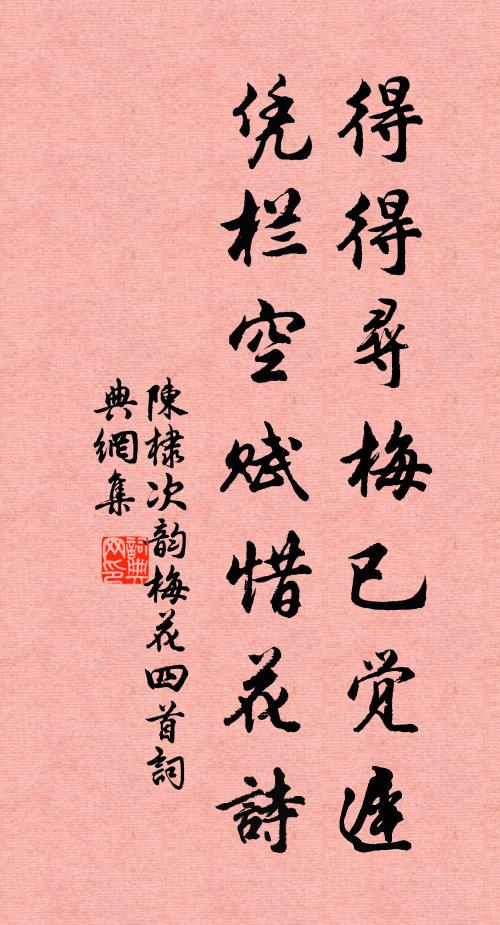 得得尋梅已觉遲
凭栏空赋惜花詩
陳棣次韵梅花四首詞
典網集
詞典
网印